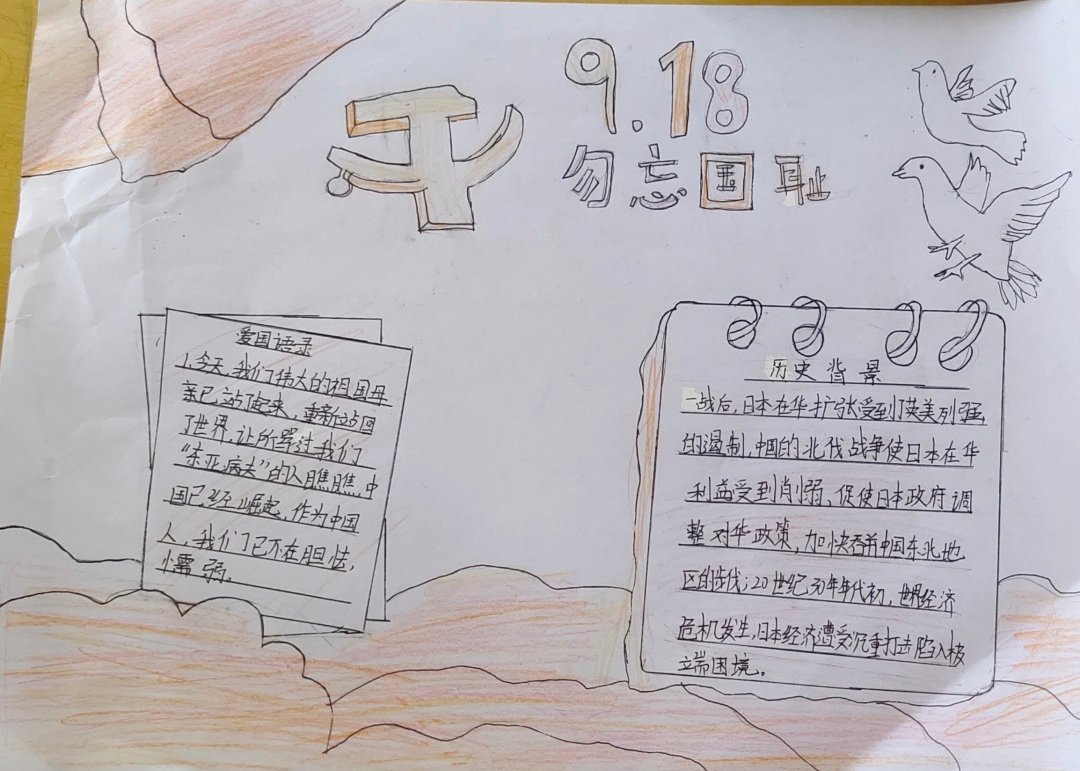 9.18
勿忘国耻
爱国语录
1.今天,我们伟大的祖国母
亲已站了起来,重新站回
了世界,让所骂过我们
“东亚病夫”的人瞧瞧,中
国已经崛起,作为中国
人,我们已不在胆怯,
懦弱。
历史背景
一战后,日本在华扩张受到了英美列强
的遏制,中国的北伐战争使日本在华
利益受到削弱,促使日本政府调
整对华政策,加快吞并中国东北地
区的步伐;20世纪30年年代初,世界经济
危机发生,日本经济遭受沉重打击陷入极
端困境。